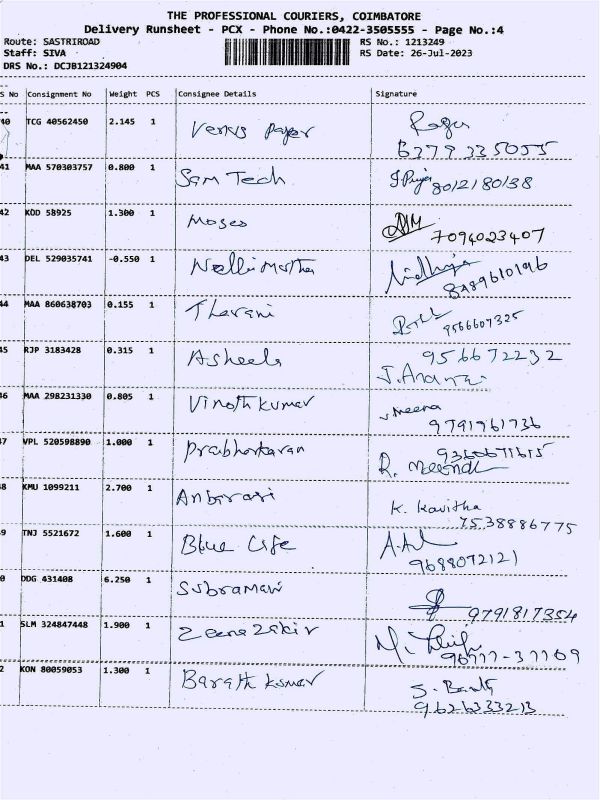 THE PROFESSIONAL COURIERS, COIMBATORE
Delivery Runsheet - PCX - Phone No.:0422-3505555 - Page No.:4
Route: SASTRIROAD RS No.: 1213249
Staff: SIVA RS Date: 26-Jul-2023
DRS No.: DCJB121324904
S No Consignment No Weight PCS Consignee Details Signature
40 TCG 40562450 2.145 1 Venus paper
6379335055
41 MAA 570303757 0.800 1 Sam Tech J.Priya 8012180138
42 KOD 58925 1.300 1 Moses
7094023407
43 DEL 529035741 -0.550 1 Nidhiya
8489610196
44 MAA 860638703 0.155 1 Tharani
9566607325
45 RJP 3183428 0.315 1 Asheela 9566672232
46 MAA 298231330 0.805 1 Vinoth kumar Meena
9791961736
47 VPL 520598890 1.000 1 Prabhakaran 9360671615
R.
48 KMU 1099211 2.700 1 Anbarasi K. Kavitha
7538886775
9 TNJ 5521672 1.600 1 Blue Life
9688072121
0 DDG 431408 6.250 1 Subramani
9791817354
1 SLM 324847448 1.900 1 Zeena Zakir M.
96777-37709
2 KON 80059053 1.300 1 Barath kumar S.
9626333213